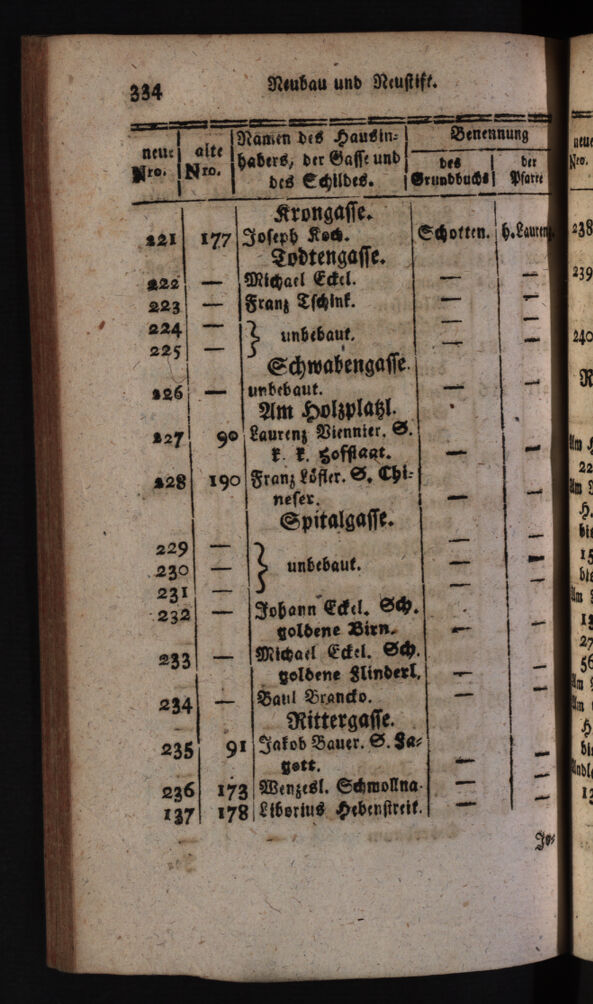 334 Neubau und Neustift.
neue Nro. | alte Nro. | Namen des Hausin=
habers, der Gasse und
des Schildes. | Benennung
des Grundbuchs | der Pfarre
Krongasse.
221 177 Joseph Koch. Schotten. h. Lauren
Todtengasse.
222 — Michael Eckel. — —
223 — Franz Tschink. — —
224 — — —
} unbebaut.
225 — — —
Schwabengasse.
226 — unbebaut. — —
Am Holzplatzl.
227 90 Laurenz Viennier. S.
k. k. Hofstaat. — —
228 190 Franz Löfler. S. Chi=
neser. — —
Spitalgasse.
229 — — —
230 — } unbebaut. — —
231 — — —
232 — Johann Eckel. Sch.
goldene Birn. — —
233 — Michael Eckel. Sch.
goldene Flinderl. — —
234 — Paul Brancko. — —
Rittergasse.
235 91 Jakob Bauer. S. Fa=
gott. — —
236 173 Wenzesl. Schwollna. — —
137 178 Liborius Hebenstreit. — —
Jo=
neue
Nro.
238
239
240
N
Am H
22
Am
H.
bis
15
bis
Am
13
27
56
Am
Am
H
bis
Andl
13